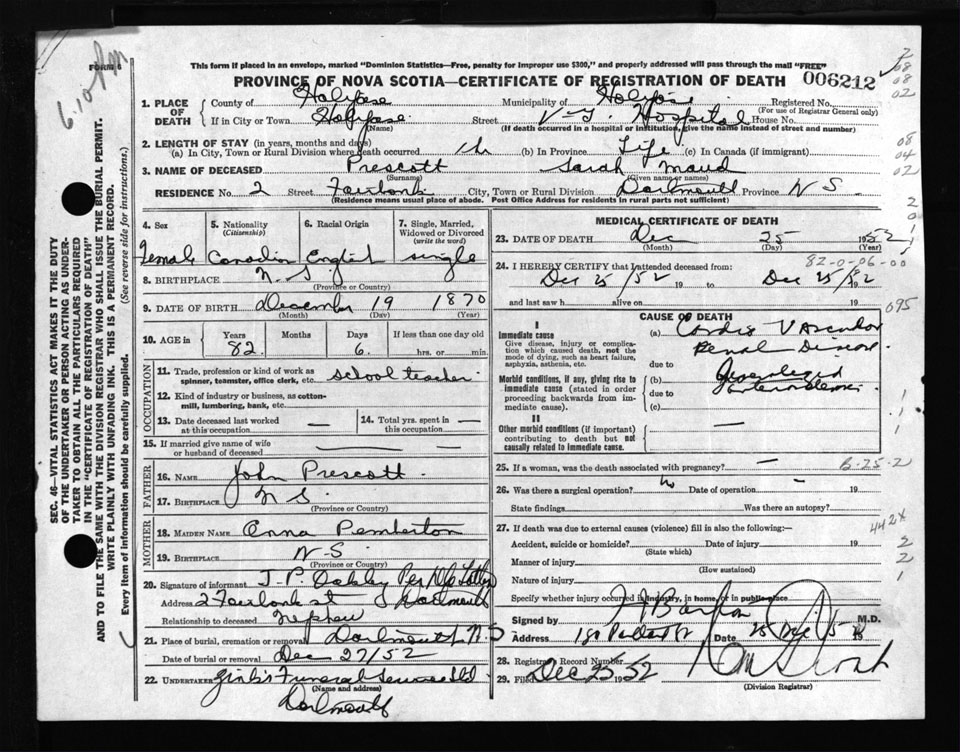 6.10 pm
FORM 6
This form if placed in an envelope, marked "Dominion Statistics—Free, penalty for improper use $300," and properly addressed will pass through the mail "FREE"
PROVINCE OF NOVA SCOTIA—CERTIFICATE OF REGISTRATION OF DEATH 006212
1. PLACE OF DEATH
County of Halifax Municipality of Halifax Registered No.
(For use of Registrar General only)
If in City or Town Halifax Street V-G. Hospital House No.
(Name) (If death occurred in a hospital or institution, give the name instead of street and number)
2. LENGTH OF STAY (in years, months and days)
(a) In City, Town or Rural Division where death occurred (b) In Province Life (c) In Canada (if immigrant)
3. NAME OF DECEASED Prescott Sarah Maud
(Surname) (Given name or names)
RESIDENCE No. 2 Street Fairbank City, Town or Rural Division Dartmouth Province N S.
(Residence means usual place of abode. Post Office Address for residents in rural parts not sufficient)
4. Sex 5. Nationality (Citizenship) 6. Racial Origin 7. Single, Married, Widowed or Divorced (write the word)
Female Canadian English single
8. BIRTHPLACE N. S.
(Province or Country)
9. DATE OF BIRTH December 19 1870
(Month) (Day) (Year)
10. AGE in Years Months Days If less than one day old
82 6. hrs. or min.
OCCUPATION
11. Trade, profession or kind of work as spinner, teamster, office clerk, etc. school teacher
12. Kind of industry or business, as cotton-mill, lumbering, bank, etc.
13. Date deceased last worked at this occupation — 14. Total yrs. spent in this occupation —
15. If married give name of wife or husband of deceased —
FATHER
16. NAME John Prescott
17. BIRTHPLACE N S.
(Province or Country)
MOTHER
18. MAIDEN NAME Anna Pemberton
19. BIRTHPLACE N S.
(Province or Country)
20. Signature of informant J. P. Oakley Per
Address 2 Fairbank st Dartmouth
Relationship to deceased nephew
21. Place of burial, cremation or removal Dartmouth, N S
Date of burial or removal Dec 27/52
22. UNDERTAKER Funeral Service Ltd
(Name and address)
Dartmouth
MEDICAL CERTIFICATE OF DEATH
23. DATE OF DEATH Dec 25 1952
(Month) (Day) (Year)
82-0-06-00
24. I HEREBY CERTIFY that I attended deceased from:
Dec 25/52 19 to Dec 25/52 19
and last saw h alive on 19
095
CAUSE OF DEATH
I
Immediate cause
Give disease, injury or complication which caused death, not the mode of dying, such as heart failure, asphyxia, asthenia, etc.
(a) Cardio Vascular
Renal Disease
due to
Morbid conditions, if any, giving rise to immediate cause (stated in order proceeding backwards from immediate cause).
(b) Generalized
due to
(c)
II
Other morbid conditions (if important) contributing to death but not causally related to immediate cause.
—
25. If a woman, was the death associated with pregnancy? — B-25-2
26. Was there a surgical operation? No Date of operation - 19
State findings Was there an autopsy?
27. If death was due to external causes (violence) fill in also the following:— 442x
Accident, suicide or homicide? Date of injury 19
(State which)
Manner of injury
(How sustained)
Nature of injury
Specify whether injury occurred in industry, in home, or in public place
Signed by M.D.
Address Date 25 Dec
28. Registrar Record Number
29. Filed Dec 25 1952
(Division Registrar)
SEC. 46—VITAL STATISTICS ACT MAKES IT THE DUTY
OF THE UNDERTAKER OR PERSON ACTING AS UNDER-
TAKER TO OBTAIN ALL THE PARTICULARS REQUIRED
IN THE "CERTIFICATE OF REGISTRATION OF DEATH"
AND TO FILE THE SAME WITH THE DIVISION REGISTRAR WHO SHALL ISSUE THE BURIAL PERMIT.
WRITE PLAINLY WITH UNFADING INK—THIS IS A PERMANENT RECORD.
Every item of information should be carefully supplied. (See reverse side for instructions.)
2
08
08
02
08
04
02